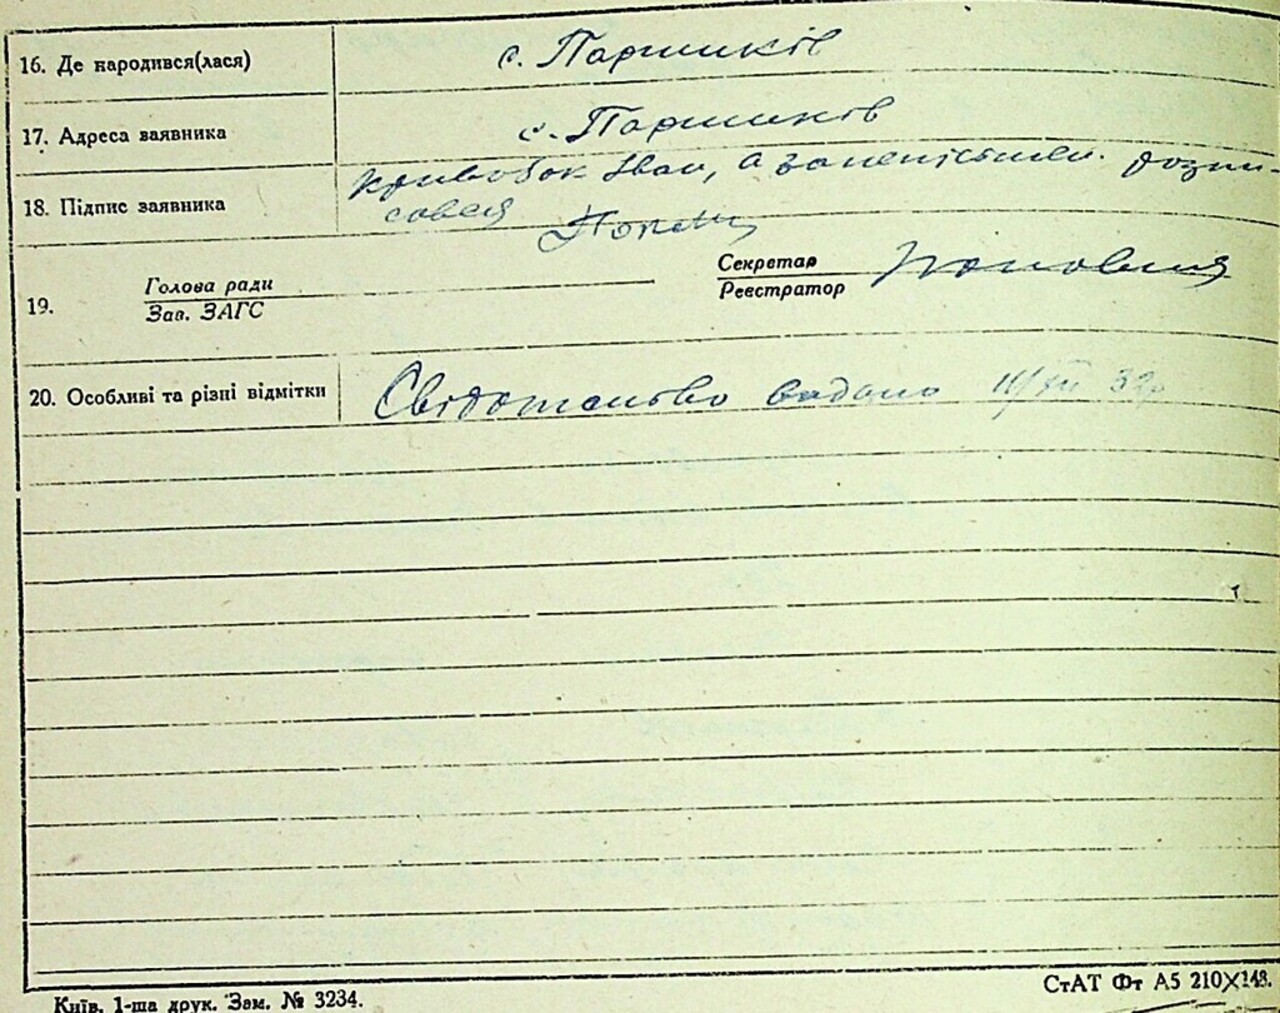 16. Де народився(лася) с. Паришків
17. Адреса заявника с. Паришків
18. Підпис заявника Кривобок Іван, а за неписьмен. розпи-
сався
Секретар
Голова ради
19. Реєстратор
Зав. ЗАГС
20. Особливі та різні відмітки Свідотство видано 11/XII 32р
СтАТ Фт А5 210X148.
Київ. 1-ша друк. Зам. № 3234.